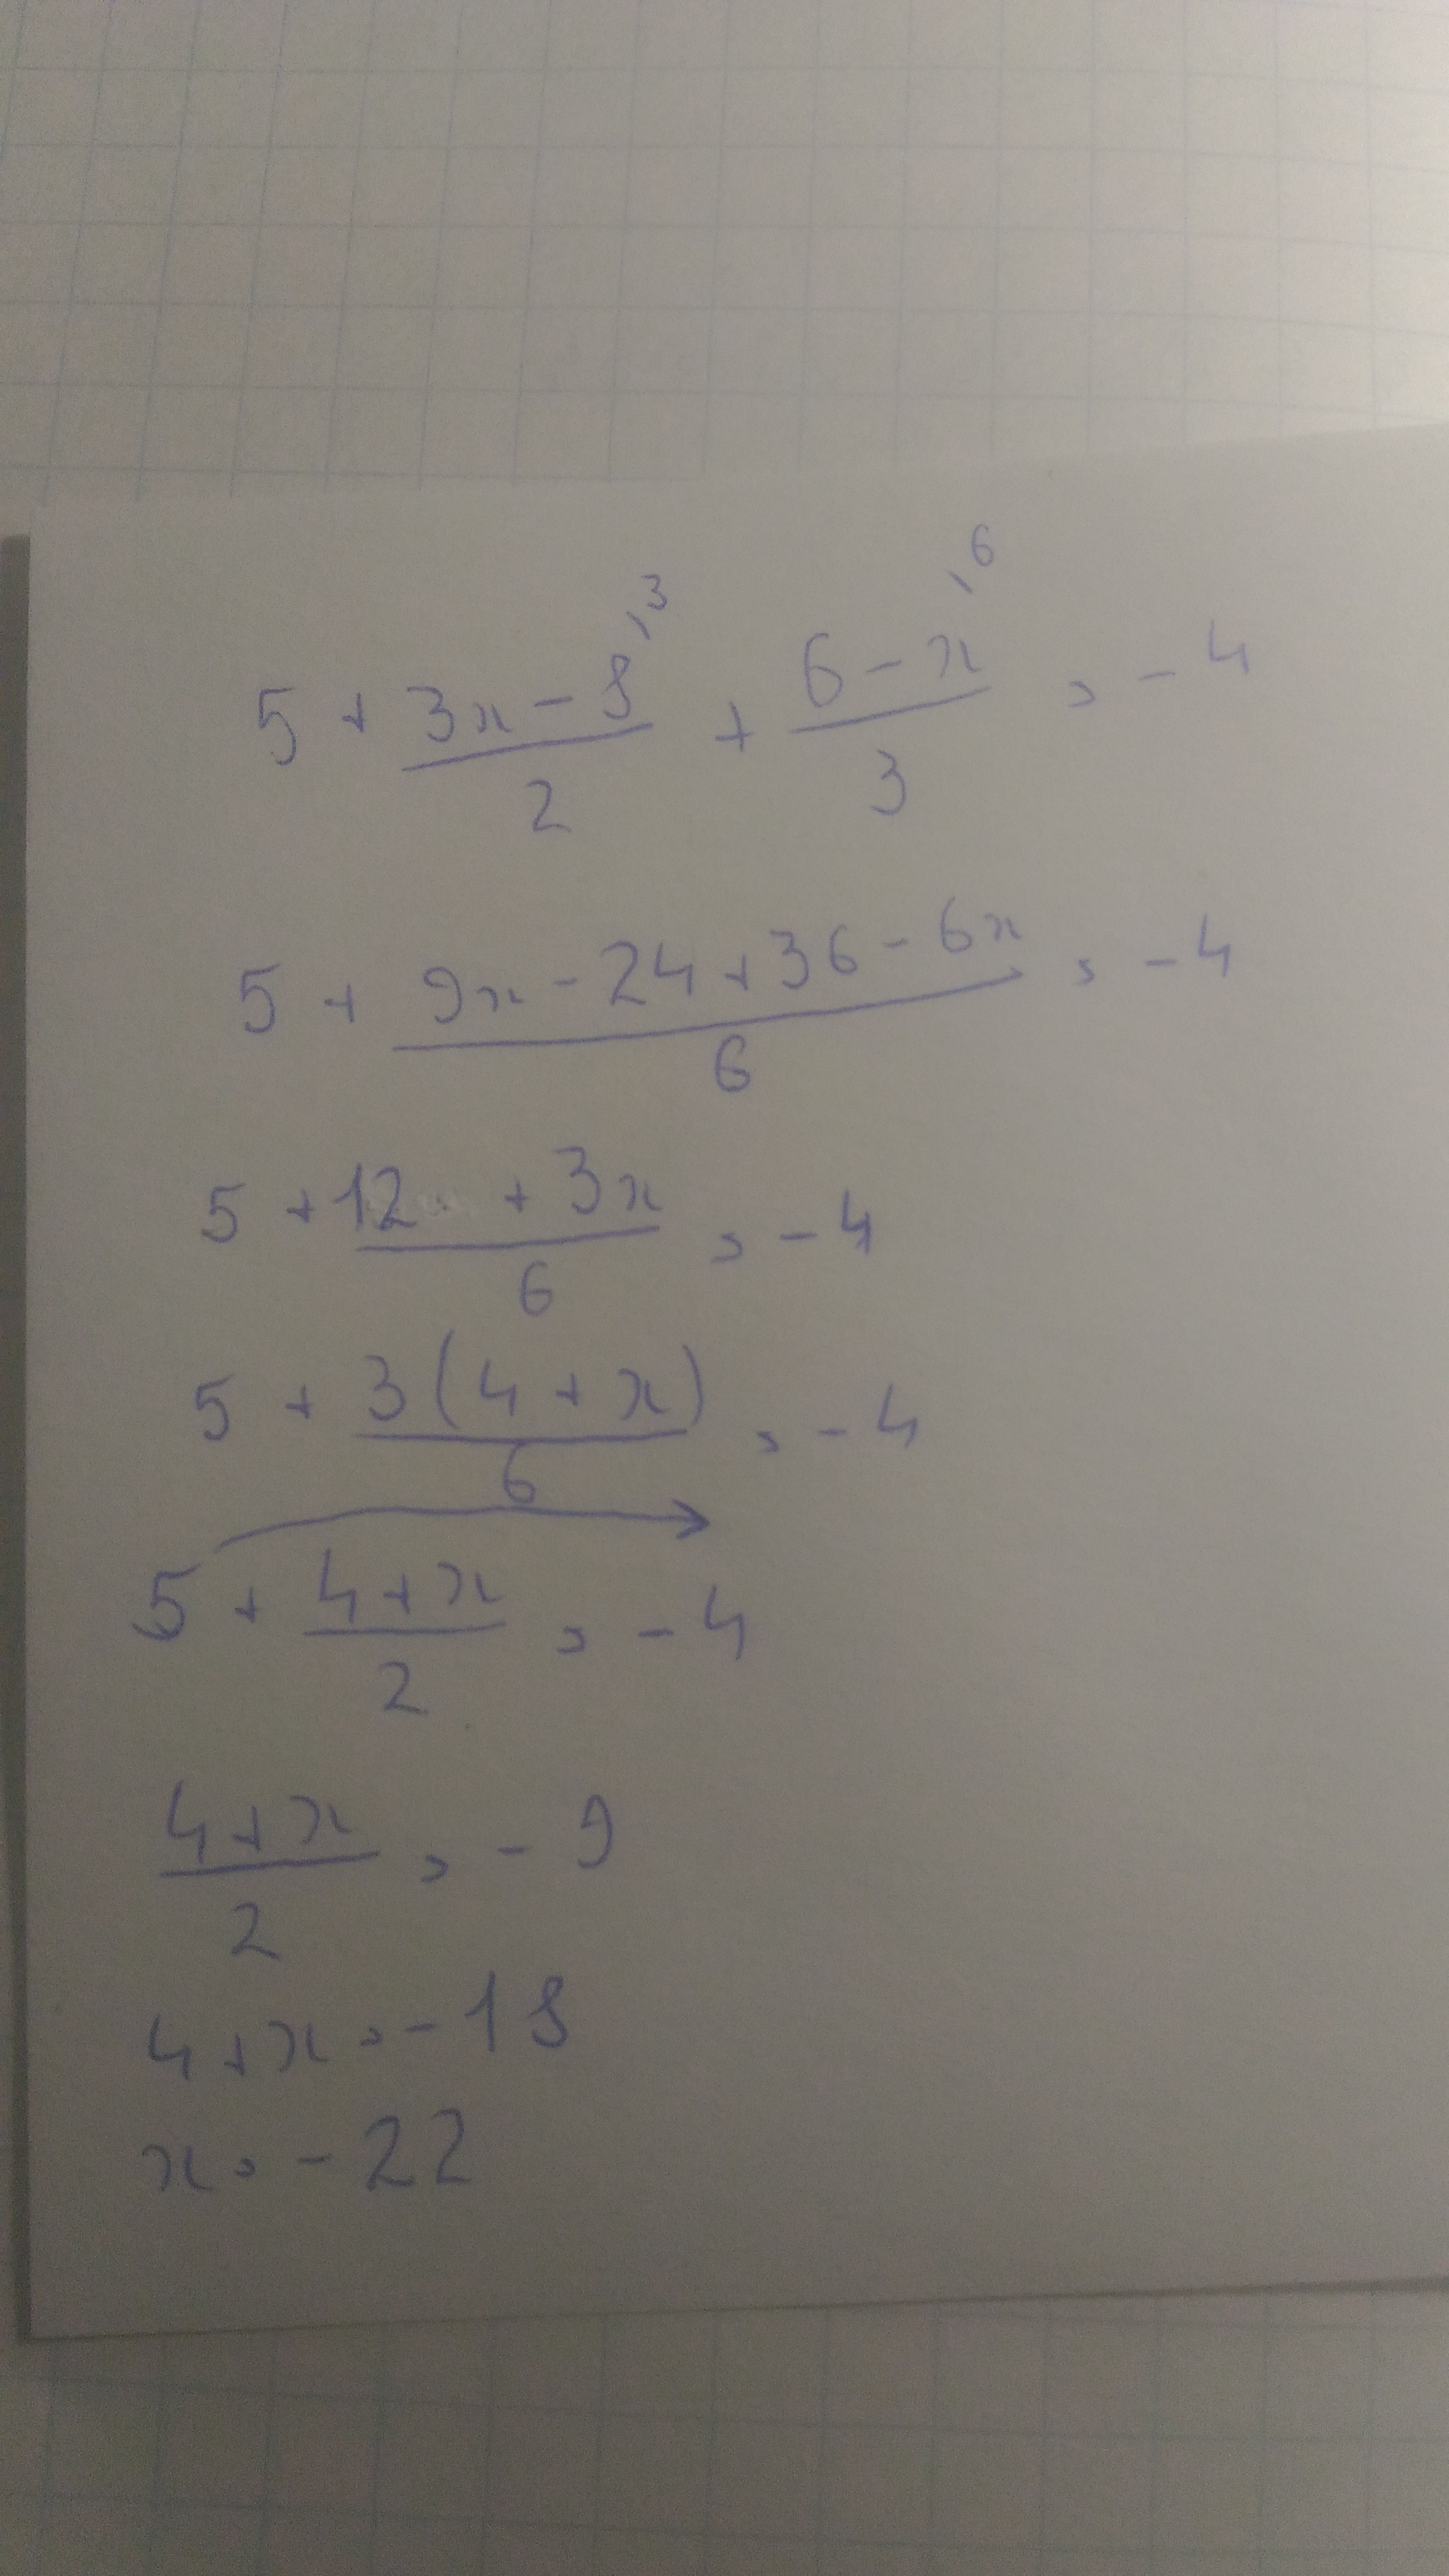 5 + (3x - 8)/2 ^3 + (6 - x)/3 ^6 = -4
5 + (9x - 24 + 36 - 6x)/6 = -4
5 + (12 + 3x)/6 = -4
5 + 3(4 + x)/6 = -4
5 + (4 + x)/2 = -4
(4 + x)/2 = -9
4 + x = -18
x = -22